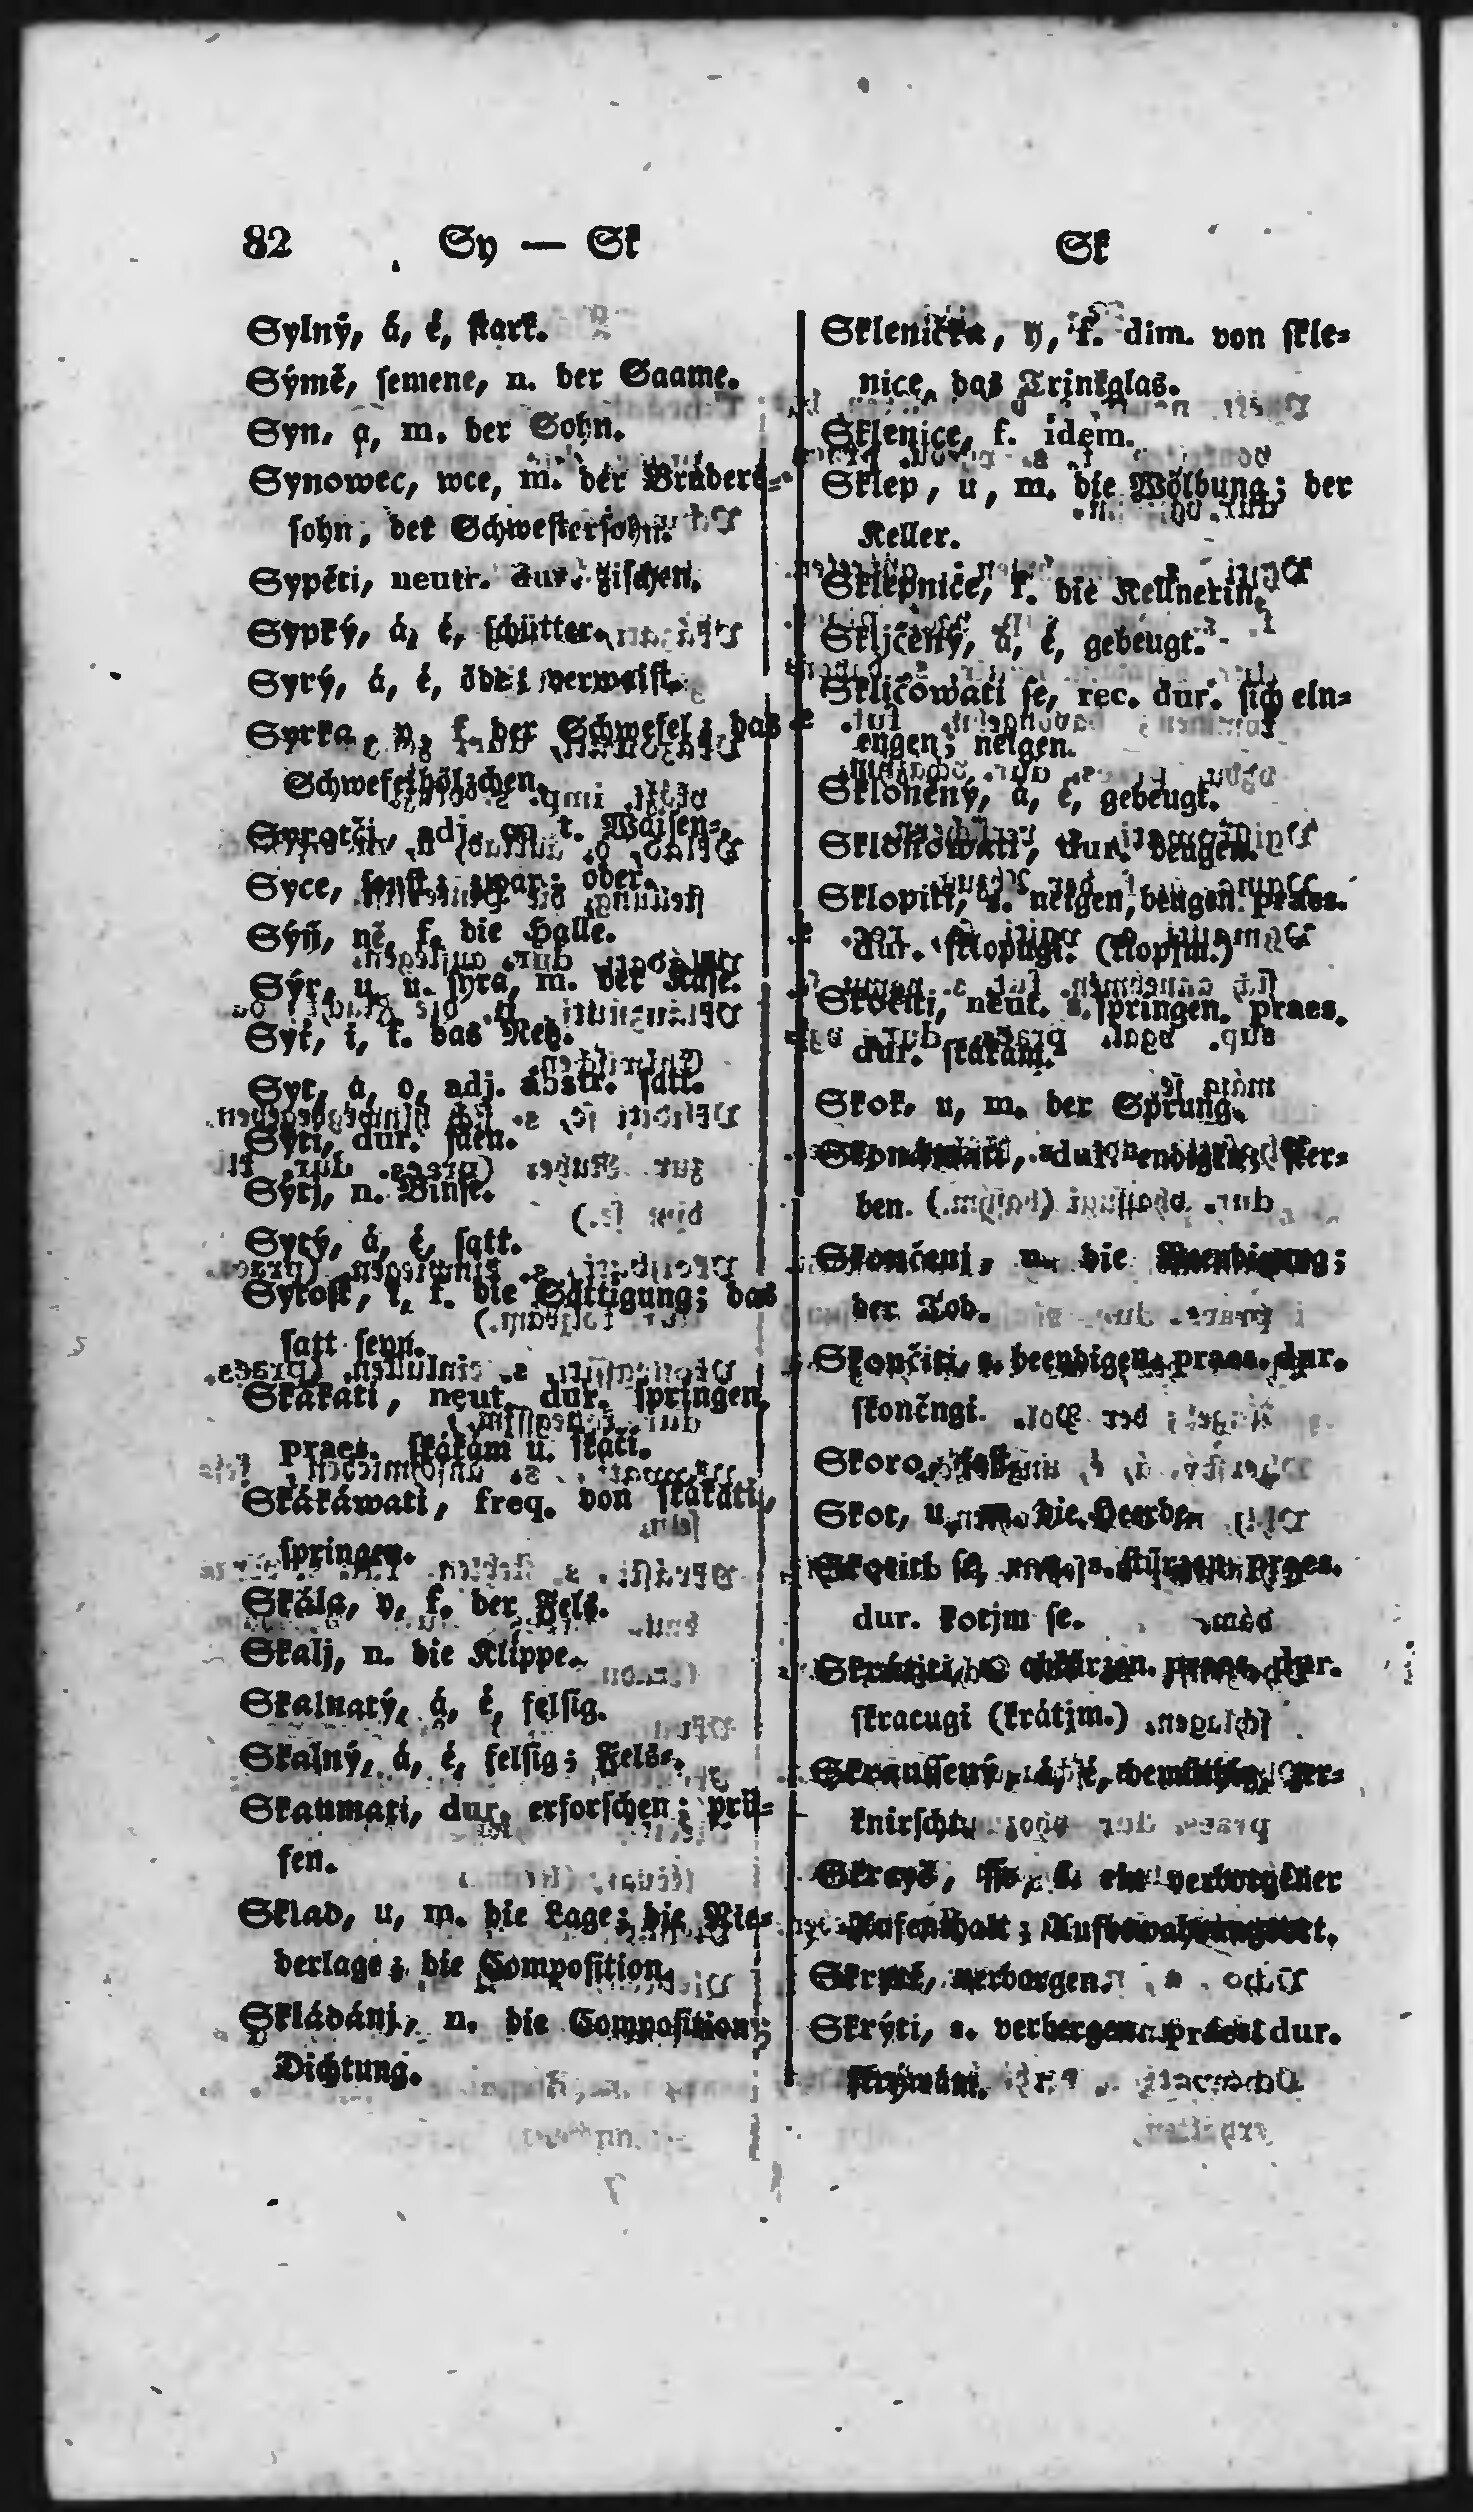 82 Sy — Sk
Sk
Sylný, á, é, stark.
Sýmě, semene, n. der Saame.
Syn, a, m. der Sohn.
Synowec, wce, m. der Bruders=
sohn, der Schwestersohn.
Sypěti, neutr. dur. zischen.
Sypký, á, é, schütter.
Syrý, á, é, öde; verwaist.
Syrka, y, f. der Schwefel; das
Schwefelhölzchen.
Syrotči, adj. on t. Waisen=.
Syce, sonst; zwar; oder.
Sýň, ně, f. die Halle.
Sýr, u, u. syra, m. der Käse.
Syt, i, f. das Netz.
Syt, a, o, adj. abstr. satt.
Syti, dur. säen.
Sytj, n. Binse.
Sytý, á, é, satt.
Sytost, i, f. die Sättigung; das
satt seyn.
Skákati, neut. dur. springen,
praes. skákám u. skáči.
Skákáwati, freq. von skákati,
springen.
Skála, y, f. der Fels.
Skalj, n. die Klippe.
Skalnatý, á, é, felsig.
Skalný, á, é, felsig; Fels=.
Skaumati, dur. erforschen; prü=
fen.
Sklad, u, m. die Lage; die Nie=
derlage; die Composition.
Skládánj, n. die Composition;
Dichtung.
Sklenička, y, f. dim. von skle=
nice, das Trinkglas.
Sklenice, f. idem.
Sklep, u, m. die Wölbung; der
Keller.
Sklepnice, f. die Kellnerin.
Skljčený, á, é, gebeugt.
Skličowati se, rec. dur. sich ein=
engen; neigen.
Skloněný, á, é, gebeugt.
Sklonowati, dur. beugen.
Sklopiti, s. neigen, beugen. praes.
dur. sklopugi. (klopjm.)
Skočiti, neut. s. springen. praes.
dur. skákám.
Skok, u, m. der Sprung.
dur. endigen; ster=
ben.
Skončenj, n. die Beendigung;
der Tod.
Skončiti, s. beendigen. praes. dur.
skončugi.
Skoro, fast.
Skot, u, m. die Heerde.
Skotiti se, rec. s. stürzen. praes.
dur. kotjm se.
Skrátiti, s. abkürzen. praes. dur.
skracugi (krátjm.)
Skraussený, á, é, demüthig, zer=
knirscht.
Skreyš, sse, f. ein verborgener
Aufenthalt; Aufbewahrungsort.
Skrytě, verborgen.
Skrýti, s. verbergen. praes. dur.
skrýwám.